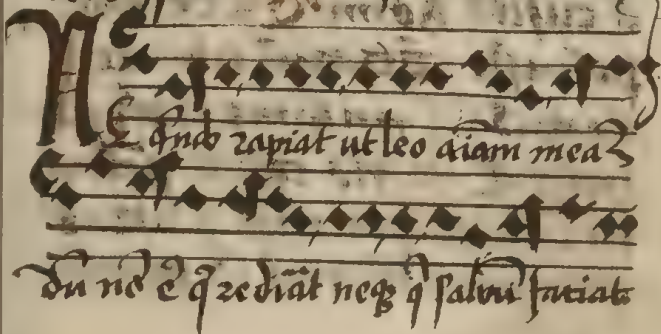 NE q̄ndo rapiat ut leo aīam meā
dū nō ē q̄ rediāt neqꝫ q̄ saluū faciat